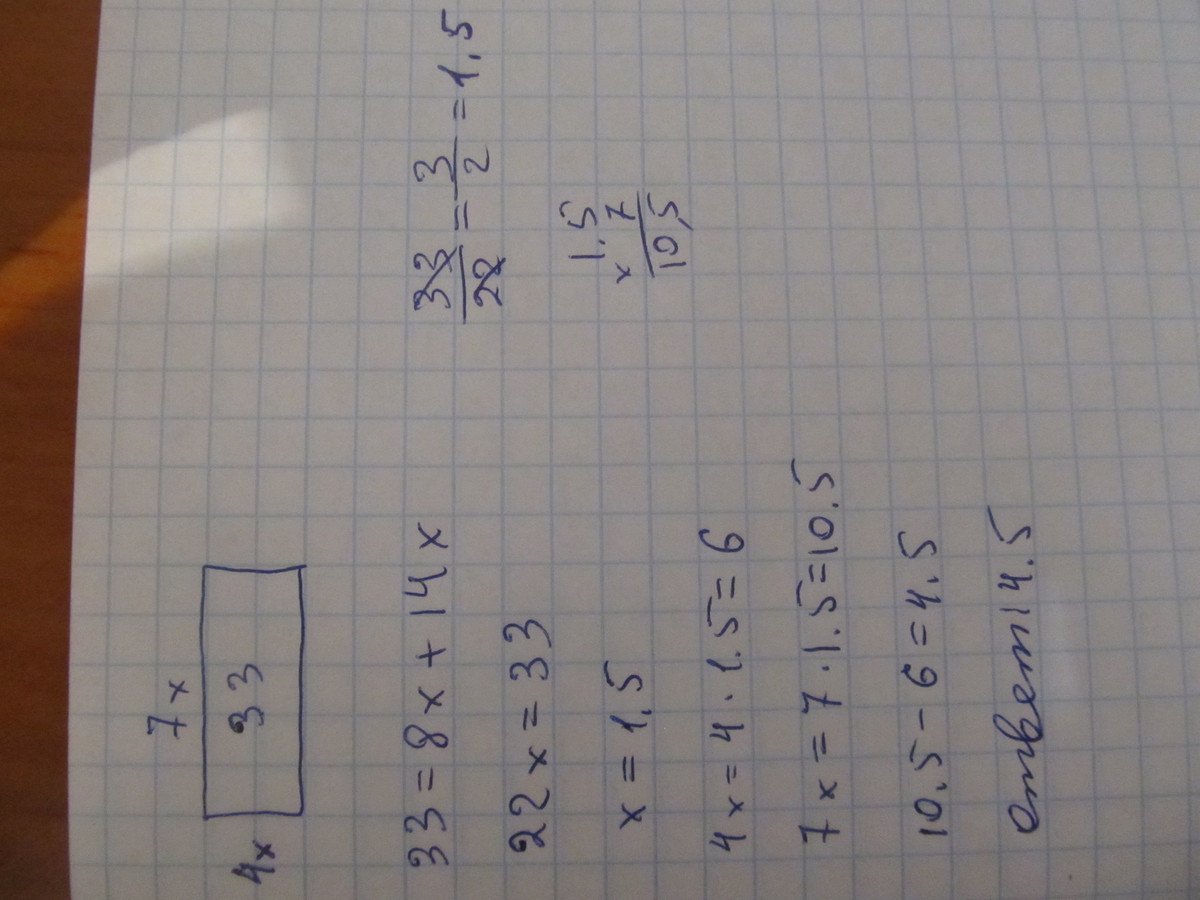 7x
4x 33
33 = 8x + 14x
33/22 = 3/2 = 1,5
22x = 33
1,5
x 7
10,5
x = 1,5
4x = 4 · 1.5 = 6
7x = 7 · 1.5 = 10.5
10.5 - 6 = 4.5
Ответ: 4.5